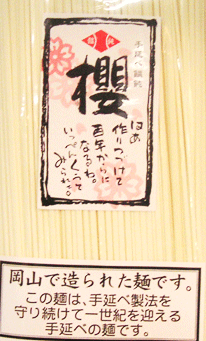 手延べ
櫻
はあ
作りつづけて
百年からに
なるわ。
いっぺんくって
みられぇ。
岡山で造られた麺です。
この麺は、手延べ製法を
守り続けて一世紀を迎える
手延べの麺です。